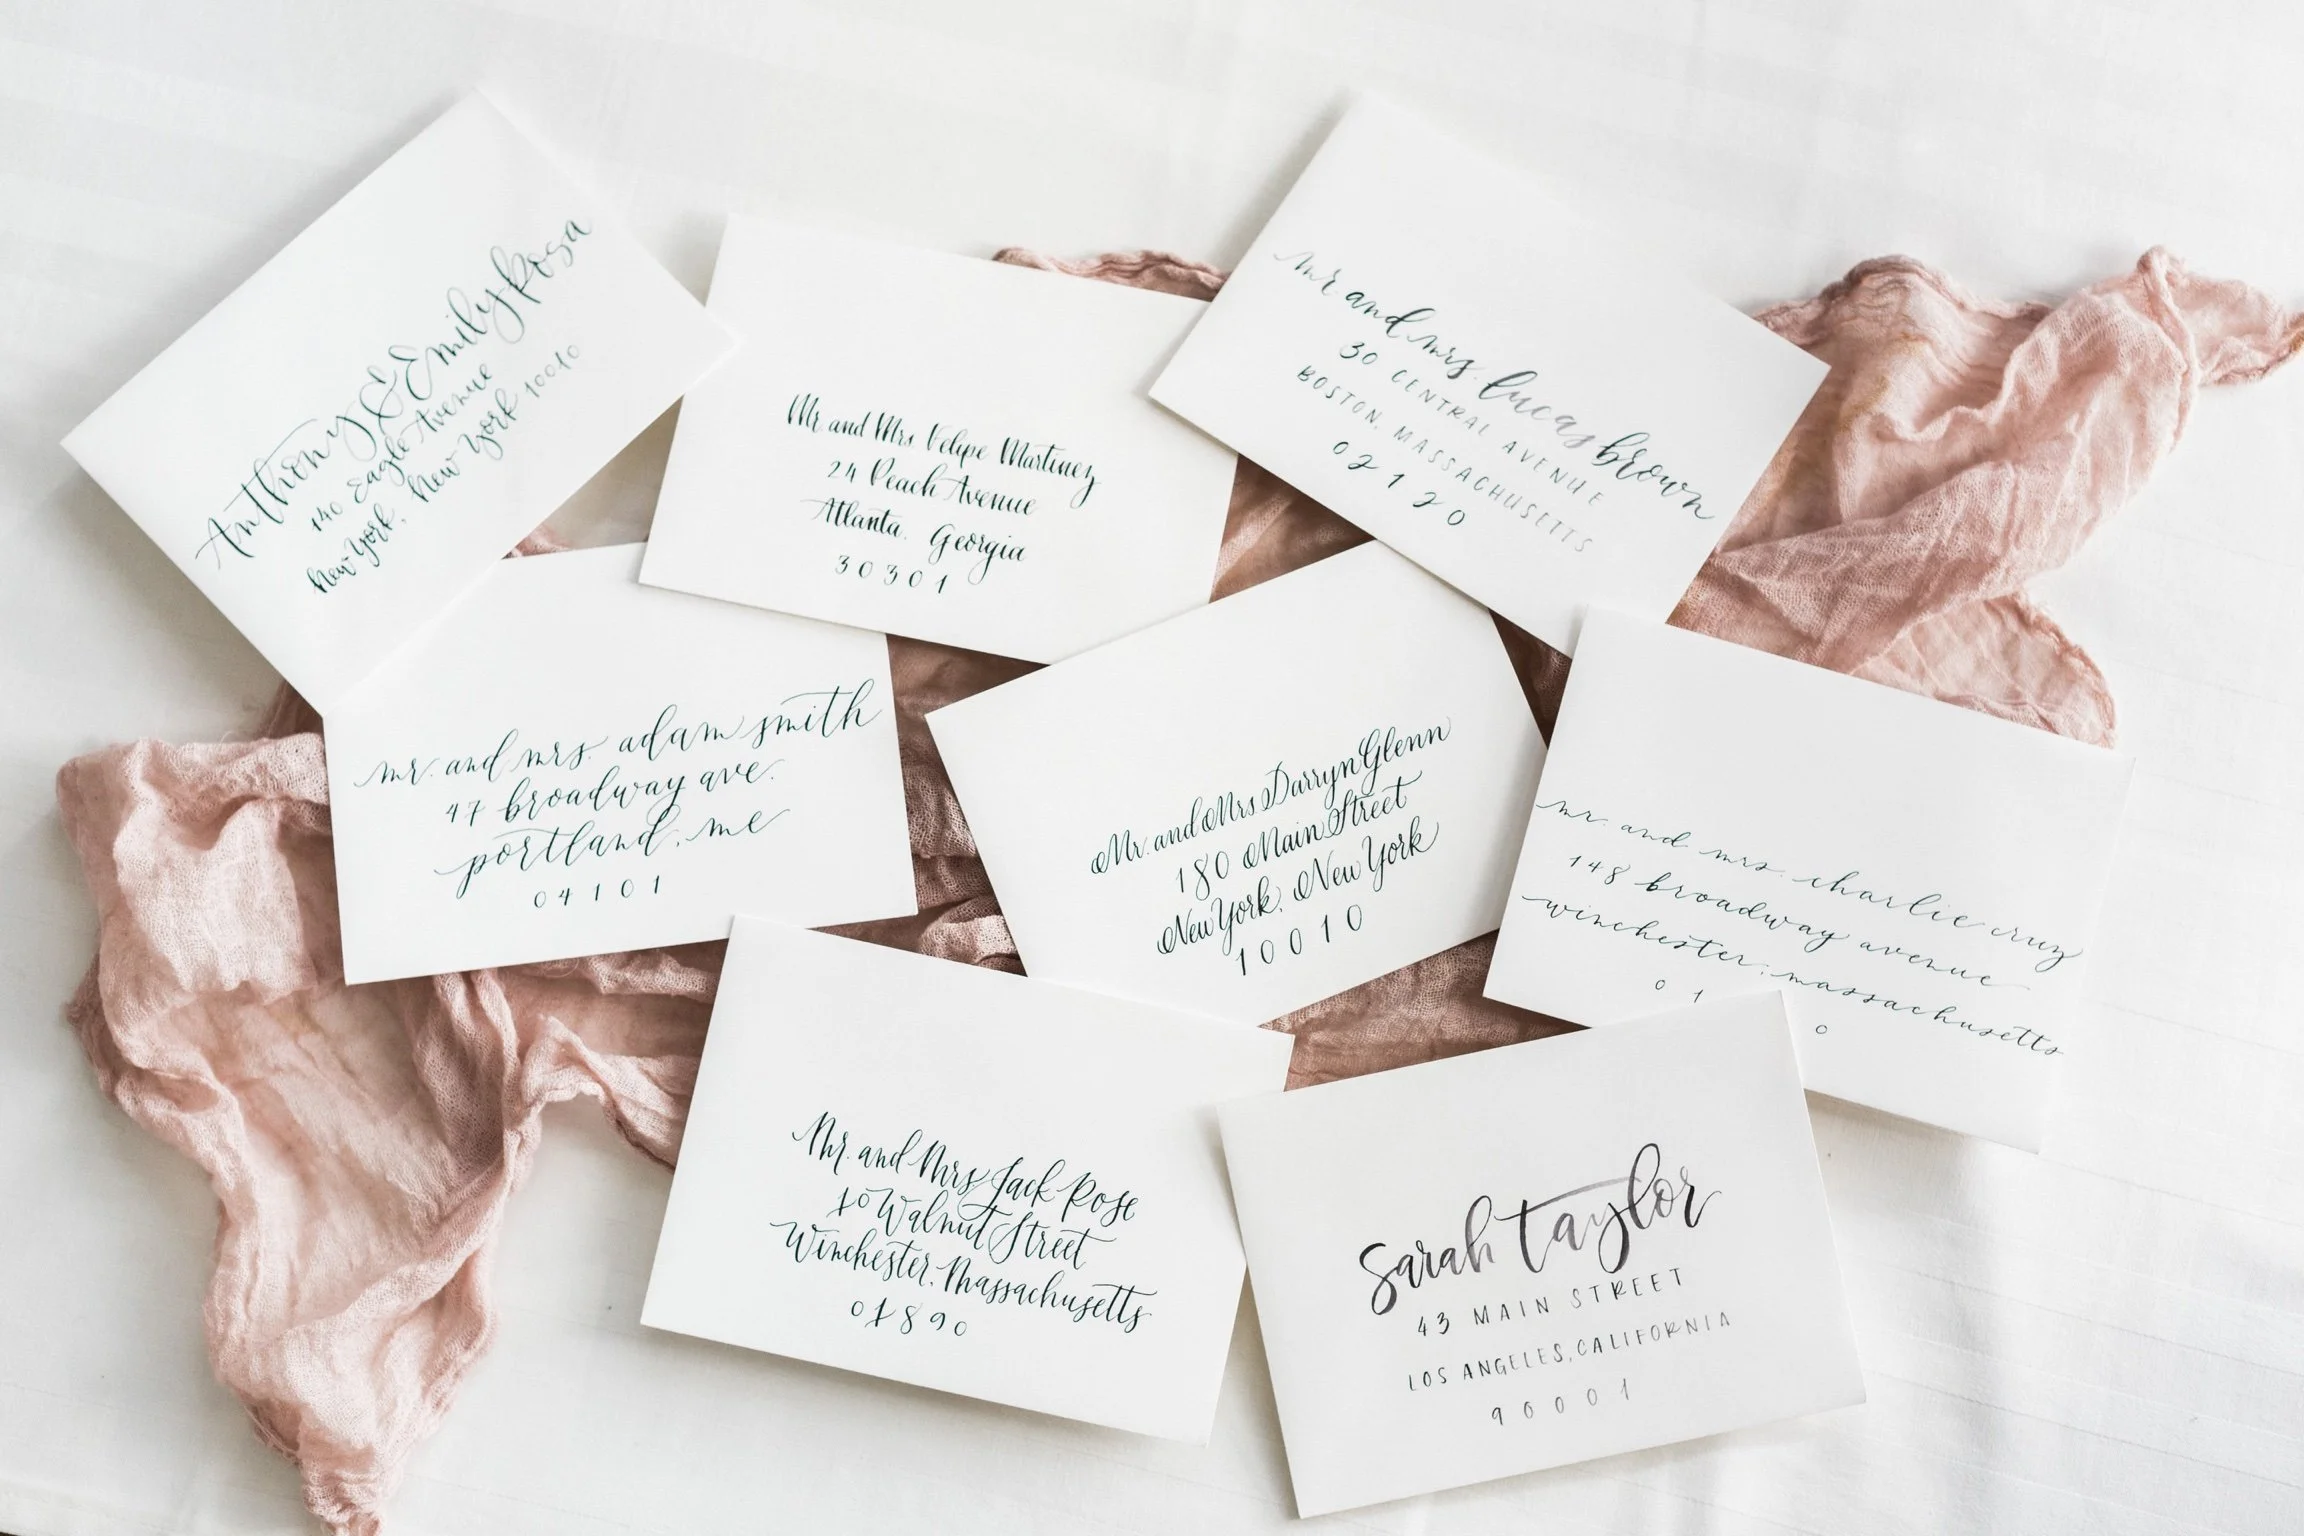 Anthony & Emily Rosa
140 Eagle Avenue
New York, New York 10010
Mr and Mrs Felipe Martinez
24 Peach Avenue
Atlanta, Georgia
30301
mr and mrs. lucas brown
30 CENTRAL AVENUE
BOSTON, MASSACHUSETTS
02120
mr. and mrs. adam smith
47 broadway ave.
portland, me
04101
Mr. and Mrs Darryn Glenn
180 Main Street
New York, New York
10010
mr. and mrs. charlie cruz
148 broadway avenue
winchester, massachusetts
0 1 0
Mr. and Mrs Jack Rose
10 Walnut Street
Winchester, Massachusetts
01890
Sarah Taylor
43 MAIN STREET
LOS ANGELES, CALIFORNIA
90001